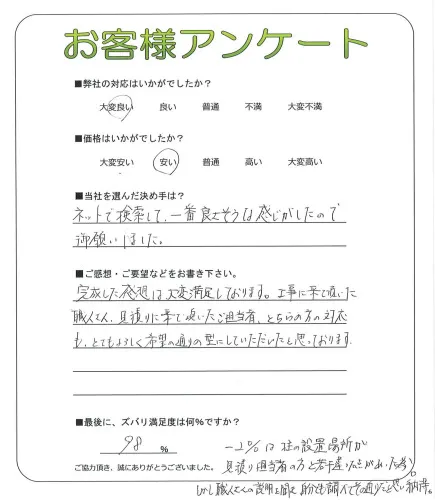 お客様アンケート
■弊社の対応はいかがでしたか?
大変良い 良い 普通 不満 大変不満
■価格はいかがでしたか?
大変安い 安い 普通 高い 大変高い
■当社を選んだ決め手は?
ネットで検索して、一番良さそうな感じがしたので
御願いしました。
■ご感想・ご要望などをお書き下さい。
完成した感想は大変満足しております。工事に来て頂いた
職人さん、見積りに来て頂いたご担当者、どちらの方の対応
も、とてもよろしく希望の通りの型にしていただいたと思っております。
■最後に、ズバリ満足度は何%ですか?
98 %
−2%は柱の設置場所が
ご協力頂き、誠にありがとうございました。
見積り担当者の方と若干違いがあった為。
しかし職人さんの説明を聞き、自分も調べてその通りだと思い納得。